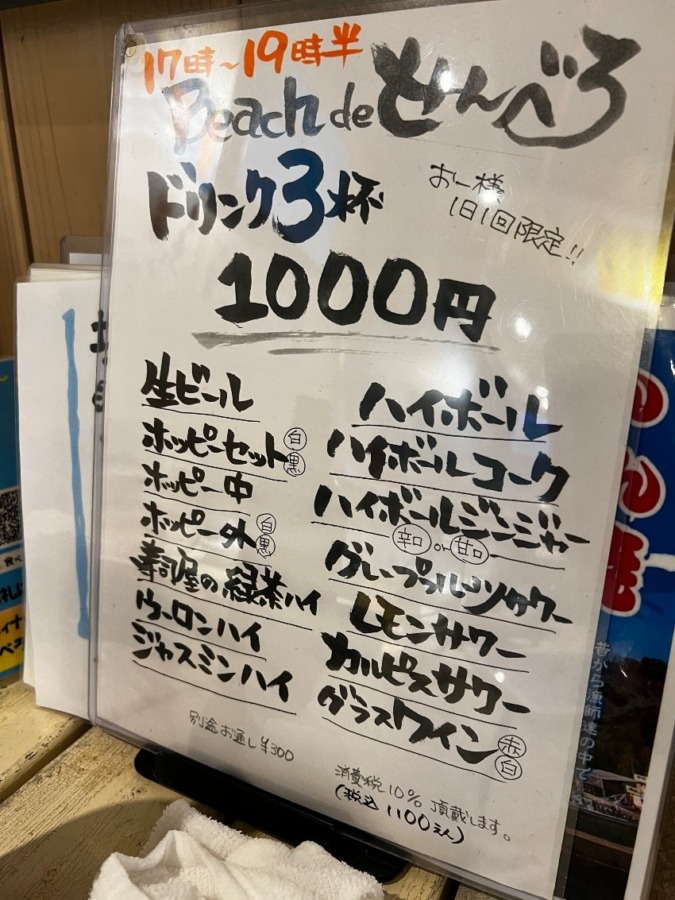 17時〜19時半
Beach de せんべろ
ドリンク3杯
お一様
1日1回限定!!
1000円
生ビール
ホッピーセット 白 黒
ホッピー中
ホッピー外 白 黒
寿司屋の緑茶ハイ
ウーロンハイ
ジャスミンハイ
ハイボール
ハイボールコーク
ハイボールジンジャー
辛口 or 甘口
グレープフルーツサワー
レモンサワー
カルピスサワー
グラスワイン 赤 白
別途お通し¥300
消費税10%頂戴します。
(税込1100えん)
昔から漁師達の中で